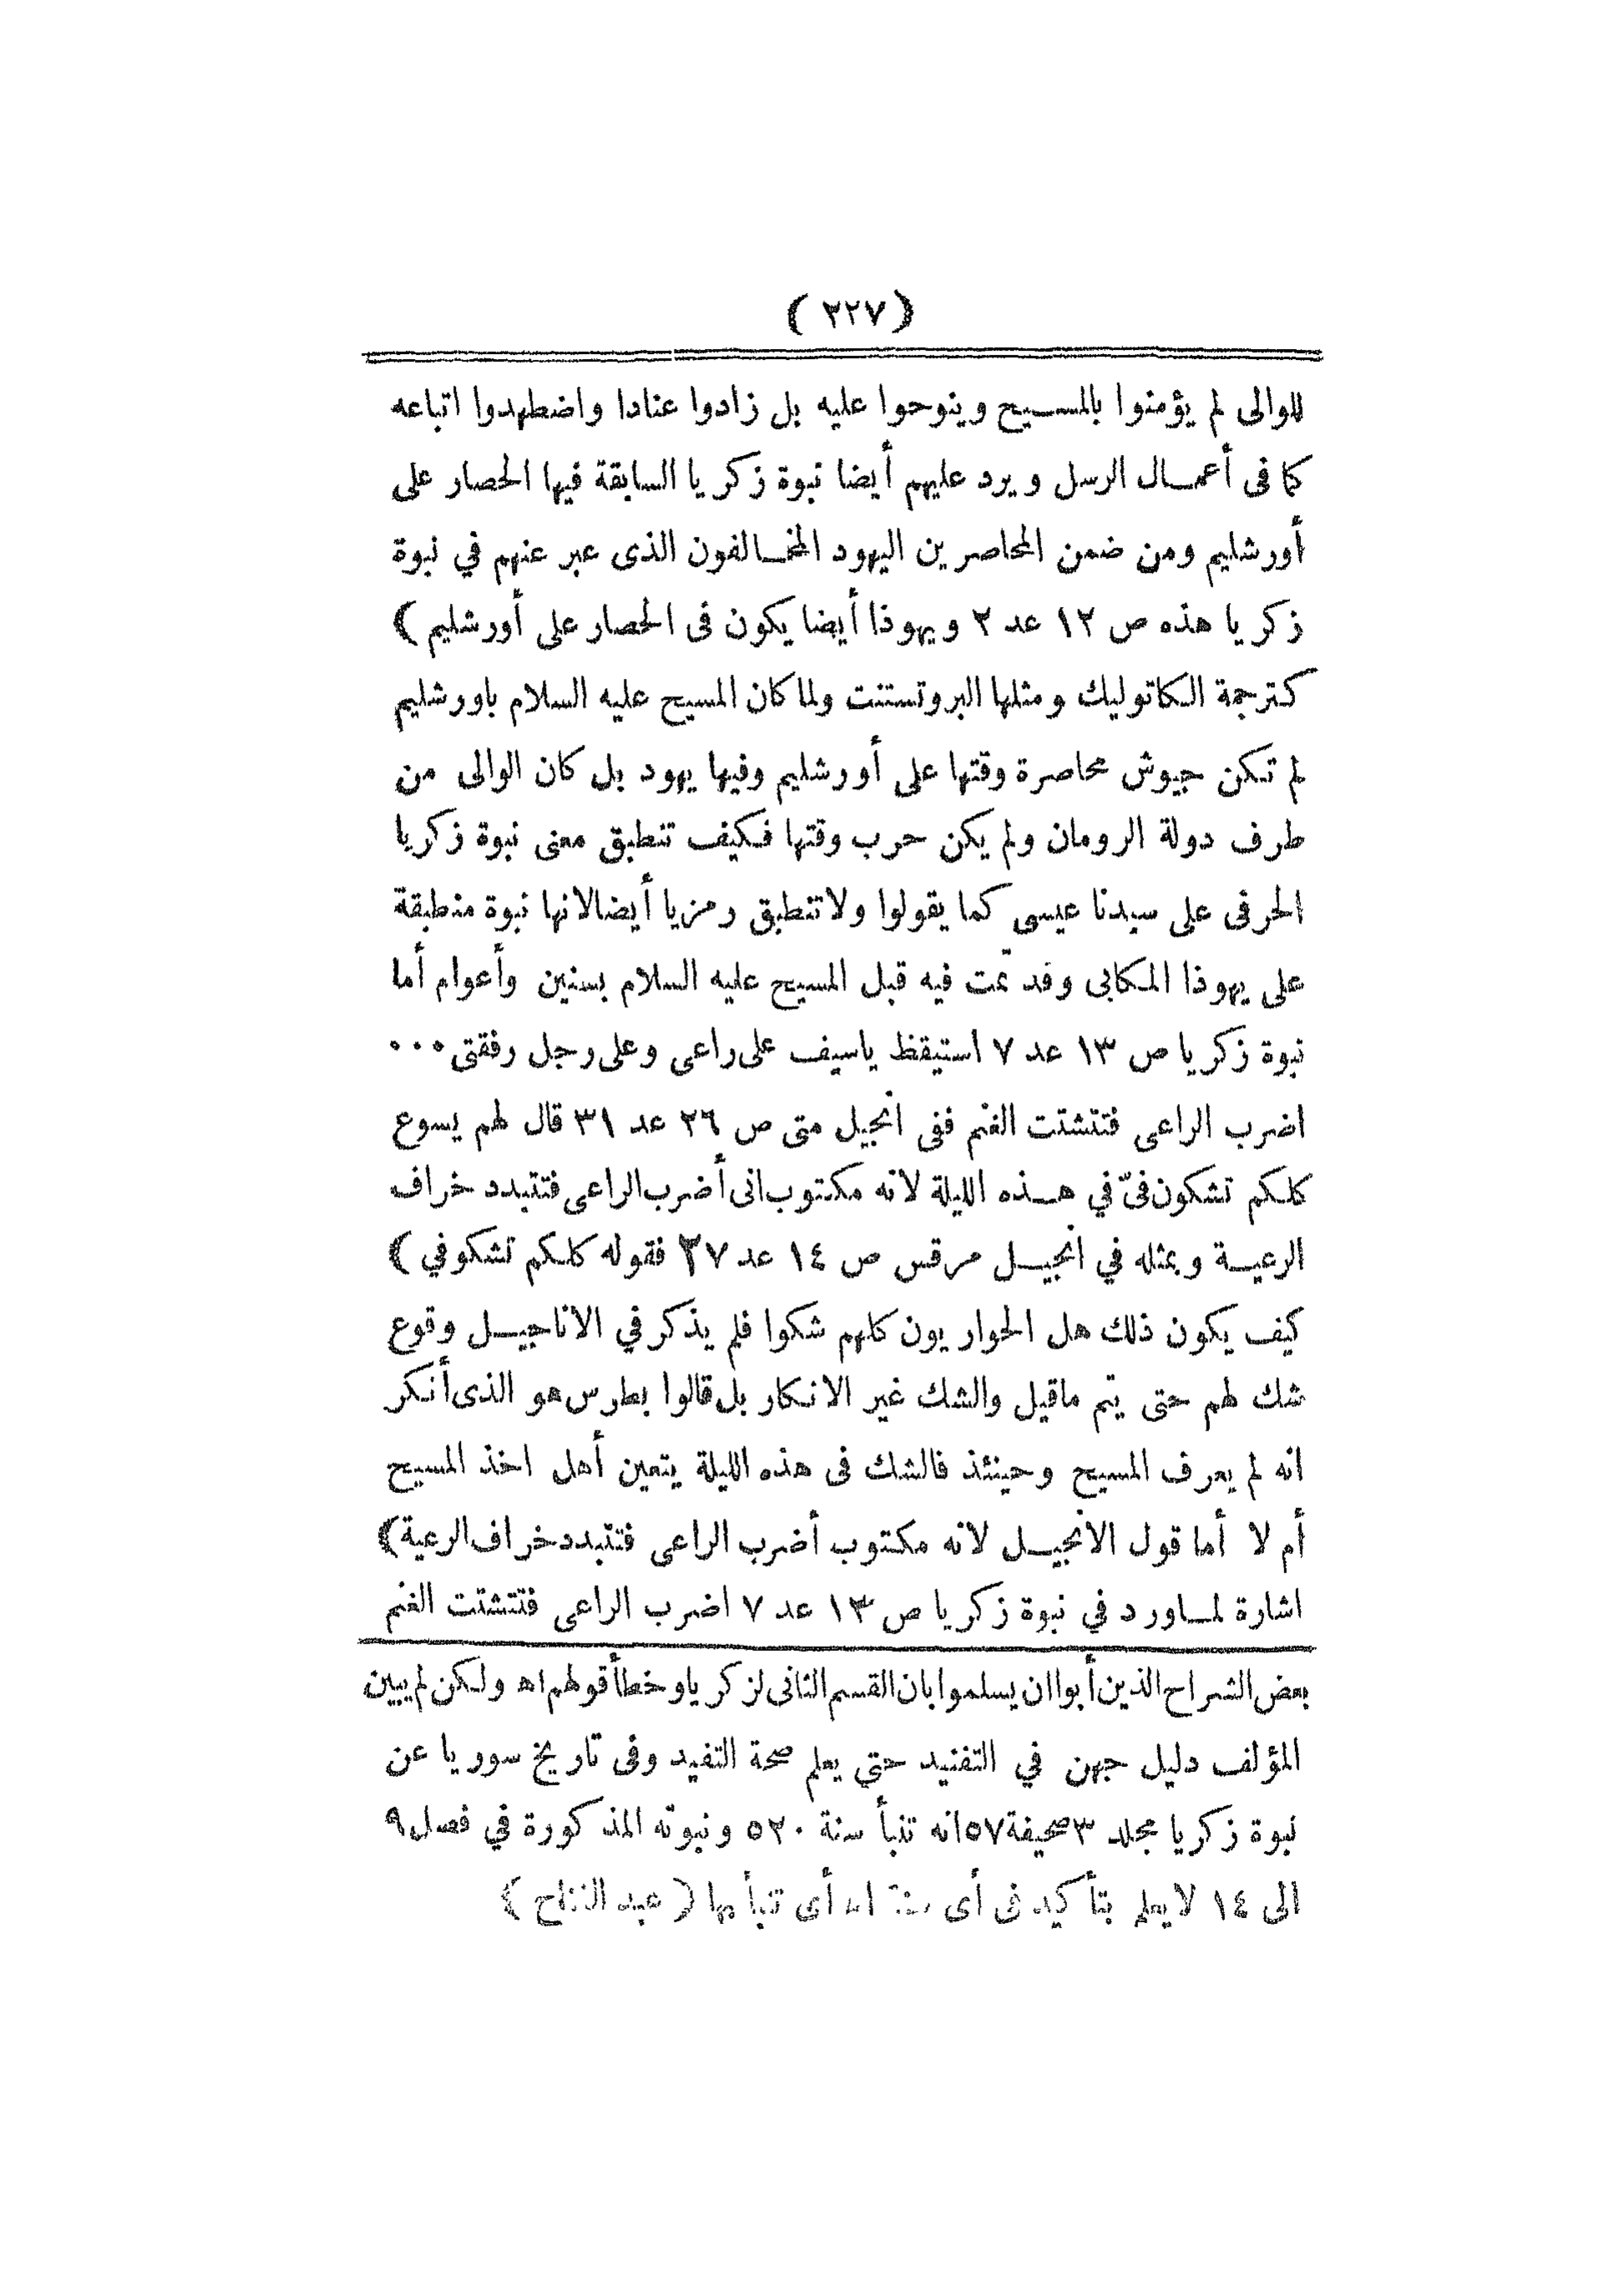 ( ٢٢٧ )
للوالى لم يؤمنوا بالمسيح وينوحوا عليه بل زادوا عنادا واضطهدوا اتباعه
كما فى أعمال الرسل ويرد عليهم أيضا نبوة زكريا السابقة فيها الحصار على
أورشليم ومن ضمن المحاصرين اليهود المخالفون الذى عبر عنهم في نبوة
زكريا هذه ص ١٢ عد ٢ ويهوذا أيضا يكون فى الحصار على أورشليم )
كترجمة الكاتوليك ومثلها البروتستنت ولما كان المسيح عليه السلام باورشليم
لم تكن جيوش محاصرة وقتها على أورشليم وفيها يهود بل كان الوالى من
طرف دولة الرومان ولم يكن حرب وقتها فكيف تنطبق معنى نبوة زكريا
الحرفى على سيدنا عيسى كما يقولوا ولا تنطبق رمزيا أيضا لانها نبوة منطبقة
على يهوذا المكابى وقد تمت فيه قبل المسيح عليه السلام بسنين وأعوام أما
نبوة زكريا ص ١٣ عد ٧ استيقظ ياسيف على راعى وعلى رجل رفقتى ٠٠٠
اضرب الراعى فتتشتت الغنم ففى انجيل متى ص ٢٦ عد ٣١ قال لهم يسوع
كلكم تشكون فىّ في هذه الليلة لانه مكتوب انى أضرب الراعى فتتبدد خراف
الرعية وبمثله في انجيل مرقس ص ١٤ عد ٢٧ فقوله كلكم تشكوفي )
كيف يكون ذلك هل الحواريون كلهم شكوا فلم يذكر في الاناجيل وقوع
شك لهم حتى يتم ماقيل والشك غير الانكار بل قالوا بطرس هو الذى أنكر
انه لم يعرف المسيح وحينئذ فالشك فى هذه الليلة يتعين أهل اخذ المسيح
أم لا أما قول الانجيل لانه مكتوب أضرب الراعى فتتبدد خراف الرعية )
اشارة لما ورد في نبوة زكريا ص ١٣ عد ٧ اضرب الراعى فتتشتت الغنم
بعض الشراح الذين أبوا ان يسلموا بان القسم الثانى لزكريا وخطأ قولهم اه ولكن لم يبين
المؤلف دليل جهن في التفنيد حتي يعلم صحة التفيد وفى تاريخ سوريا عن
نبوة زكريا مجلد ٣ صحيفة ٥٧ انه تنبأ سنة ٥٢٠ ونبوته المذكورة في فصل ٩
الى ١٤ لا يعلم بتأكيد فى أى اه أى تنبأ بها ( عبد )